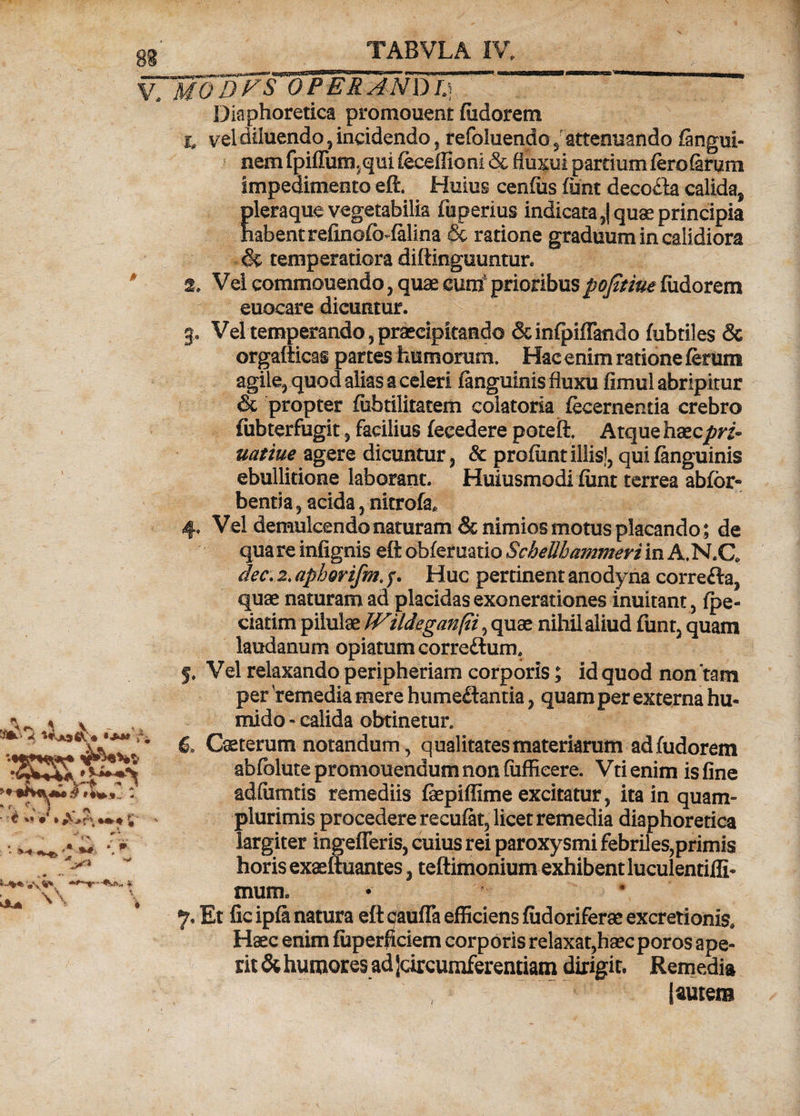 88 TABVLA IV.
V. MODVS OPERANDI.
Diaphoretica promouent ſudorem
1. vel diluendo, incidendo, reſoluendo, attenuando ſangui-
nem ſpiſſum, qui ſeceſſioni & fluxui partium ſeroſarum
impedimento eſt. Huius cenſus ſunt decocta calida,
pleraque vegetabilia ſuperius indicata, quæ principia
habent reſinoſo-ſalina & ratione graduum in calidiora
& temperatiora diſtinguuntur.
2. Vel commouendo, quæ cum prioribus poſitiue ſudorem
euocare dicuntur.
3. Vel temperando, præcipitando & inſpiſſando ſubtiles &
orgaſticas partes humorum. Hac enim ratione ſerum
agile, quod alias a celeri ſanguinis fluxu ſimul abripitur
& propter ſubtilitatem colatoria ſecernentia crebro
ſubterfugit, facilius ſecedere poteſt. Atque hæc pri-
uatiue agere dicuntur, & proſunt illis, qui ſanguinis
ebullitione laborant. Huiusmodi ſunt terrea abſor-
bentia, acida, nitroſa.
4. Vel demulcendo naturam & nimios motus placando; de
qua re inſignis eſt obſeruatio Schellhammeri in A.N.C.
dec. 2. aphoriſm. 5. Huc pertinent anodyna correcta,
quæ naturam ad placidas exonerationes inuitant, ſpe-
ciatim pilulæ Wildeganſii, quæ nihil aliud ſunt, quam
laudanum opiatum correctum.
5. Vel relaxando peripheriam corporis; id quod non tam
per remedia mere humectantia, quam per externa hu-
mido-calida obtinetur.
6. Cæterum notandum, qualitates materiarum ad ſudorem
abſolute promouendum non ſufficere. Vti enim is ſine
adſumtis remediis ſæpiſſime excitatur, ita in quam-
plurimis procedere recuſat, licet remedia diaphoretica
largiter ingeſſeris, cuius rei paroxysmi febriles, primis
horis exæſtuantes, teſtimonium exhibent luculentiſſi-
mum.
7. Et ſic ipſa natura eſt cauſſa efficiens ſudoriferæ excretionis.
Hæc enim ſuperficiem corporis relaxat, hæc poros ape-
rit & humores ad circumferentiam dirigit. Remedia
autem